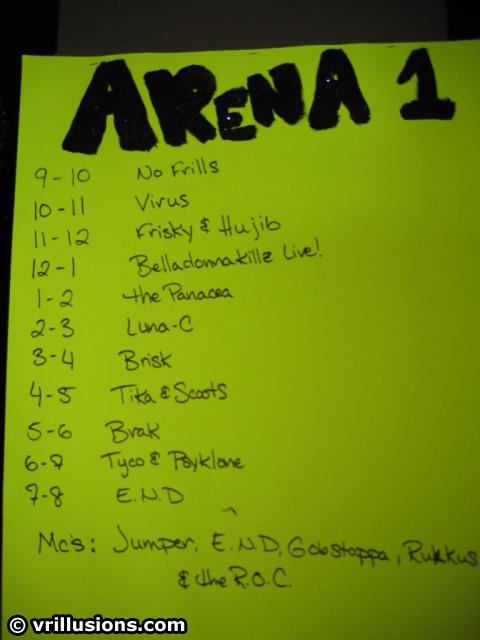 ARENA 1
9-10 No Frills
10-11 Virus
11-12 Frisky & Hujib
12-1 Belladonnakillz Live!
1-2 the Panacea
2-3 Luna-C
3-4 Brisk
4-5 Tika & Scoots
5-6 Brak
6-7 Tyco & Psyklone
7-8 E.N.D
Mc's: Jumper, E.N.D, Gobstoppa, Rukkus
& the R.O.C.
© vrillusions.com